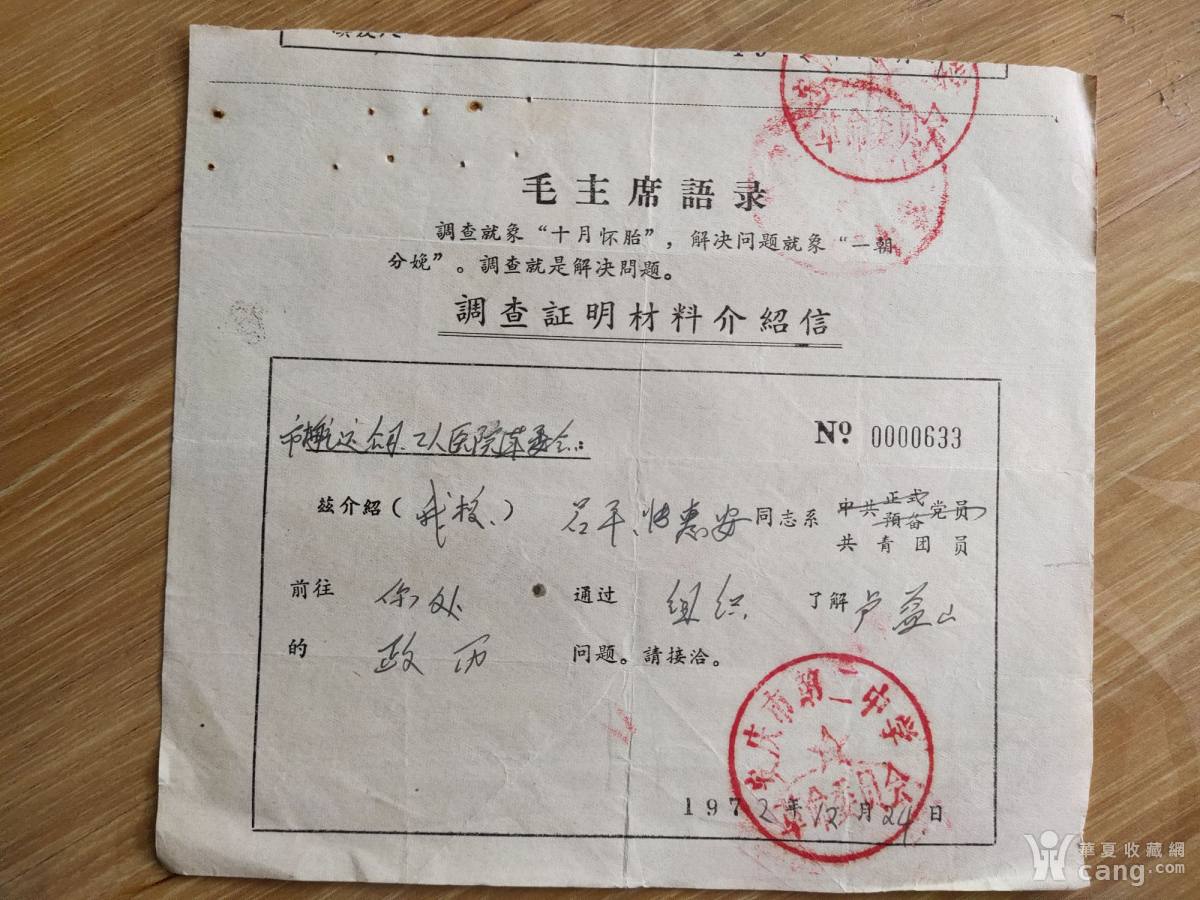 毛主席語录
調查就象“十月怀胎”，解决问题就象“一朝
分娩”。調查就是解决問題。
調查証明材料介紹信
市航运公司工人医院革委会：
№ 0000633
茲介紹（我校）吕平、恽惠安同志系 中共正式預备党员
共青团员
前往 你处 通过 组织 了解 卢益山
的 政历 问题。請接洽。
安庆市第二中学革命委员会
1972年12月24日
革命委员会
華夏收藏網
cang.com